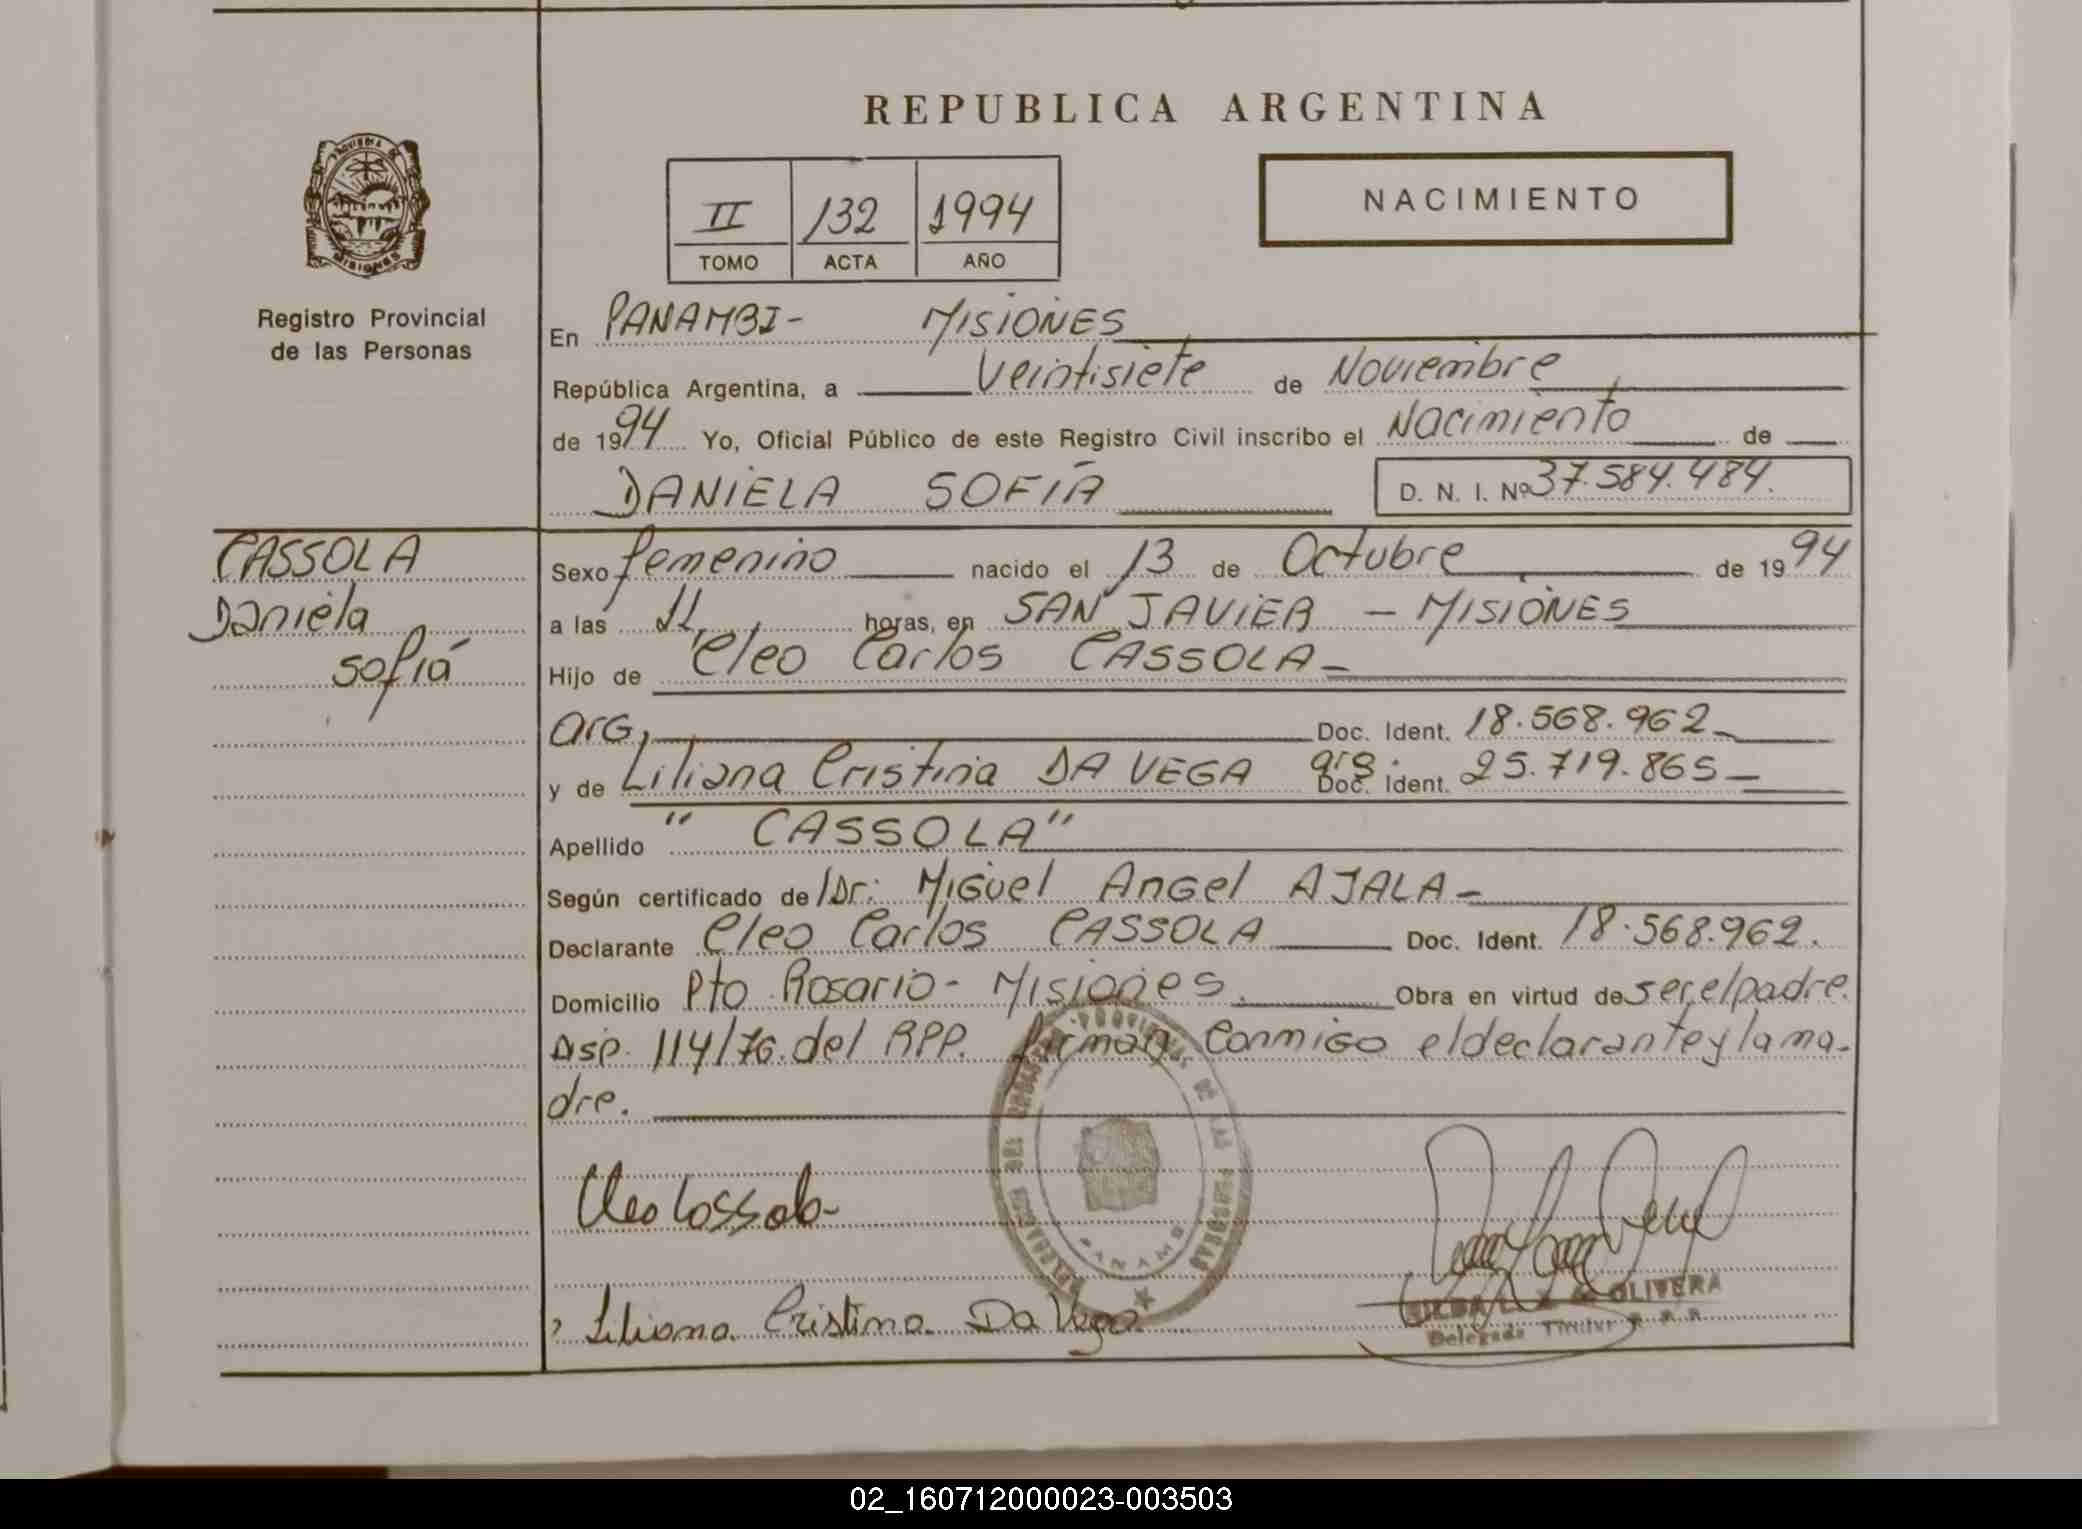 REPUBLICA ARGENTINA
PROVINCIA DE
MISIONES
Registro Provincial
de las Personas
II 132 1994
TOMO ACTA AÑO
NACIMIENTO
En PANAMBI- MISIONES
República Argentina, a Veintisiete de Noviembre
de 1994 Yo, Oficial Público de este Registro Civil inscribo el Nacimiento de
DANIELA SOFIA D. N. I. Nº 37.584.484.
CASSOLA
Daniela
Sofiá
Sexo femenino nacido el 13 de Octubre de 1994
a las 11, horas, en SAN JAVIER - MISIONES
Hijo de Cleo Carlos CASSOLA-
arg, Doc. Ident. 18.568.962-
y de Liliana Cristina DA VEGA arg. Doc. Ident. 25.719.865-
Apellido " CASSOLA"
Según certificado de /Dr: Miguel Angel AJALA-
Declarante Cleo Carlos CASSOLA Doc. Ident. 18.568.962.
Domicilio Pto Rosario- Misiones. Obra en virtud de ser el padre.
Disp. 114/76. del RPP. firman conmigo el declarante y la ma-
dre.
Cleo Cassola-
Liliana Cristina Da Vega
OLIVERA
Delegada Titular R. P. P.
02_160712000023-003503